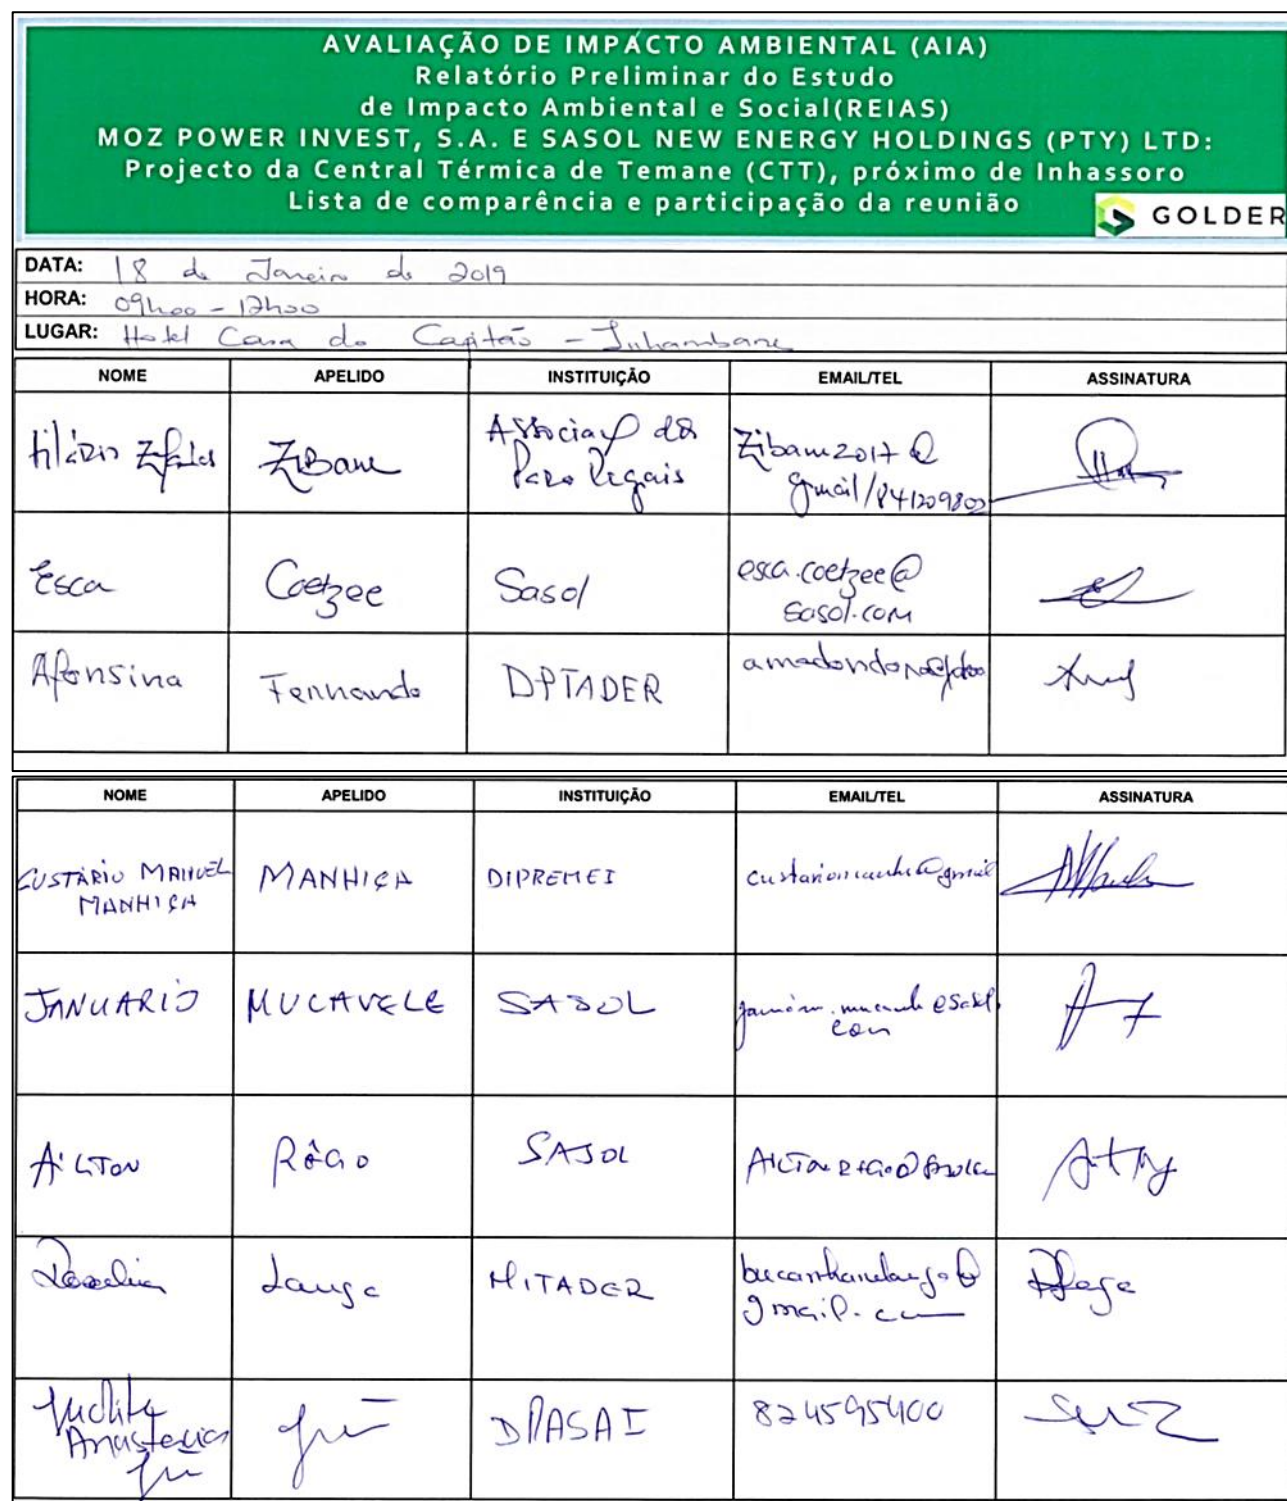 AVALIAÇÃO DE IMPACTO AMBIENTAL (AIA)
Relatório Preliminar do Estudo
de Impacto Ambiental e Social(REIAS)
MOZ POWER INVEST, S.A. E SASOL NEW ENERGY HOLDINGS (PTY) LTD:
Projecto da Central Térmica de Temane (CTT), próximo de Inhassoro
Lista de comparência e participação da reunião
GOLDER
DATA: 18 de Janeiro de 2019
HORA: 09h00 - 12h00
LUGAR: Hotel Casa do Capitão - Inhambane
NOME APELIDO INSTITUIÇÃO EMAIL/TEL ASSINATURA
Hilário Zibane Associação dos Zibane2017@
Para Legais gmail/841209802
Esca Coetzee Sasol esca.coetzee@
sasol.com
Afonsina Fernando DPTADER
NOME APELIDO INSTITUIÇÃO EMAIL/TEL ASSINATURA
CUSTÁRIO MANUEL MANHIÇA DIPREMEI
MANHIÇA
JANUARIO MUCAVELE SASOL
AILTON RÊGO SASOL
Langa MITADER
gmail.com
Judite DPASAI 824595400
Anastácia